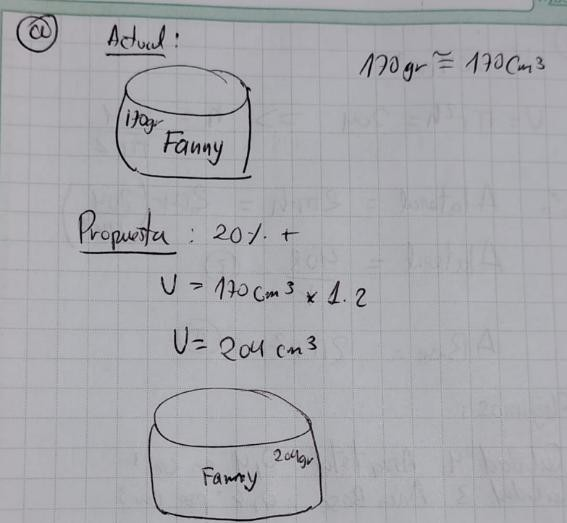 a
Actual:
170gr ≅ 170cm³
170gr
Fanny
Propuesta: 20% +
V = 170cm³ × 1.2
V = 204 cm³
204gr
Fanny